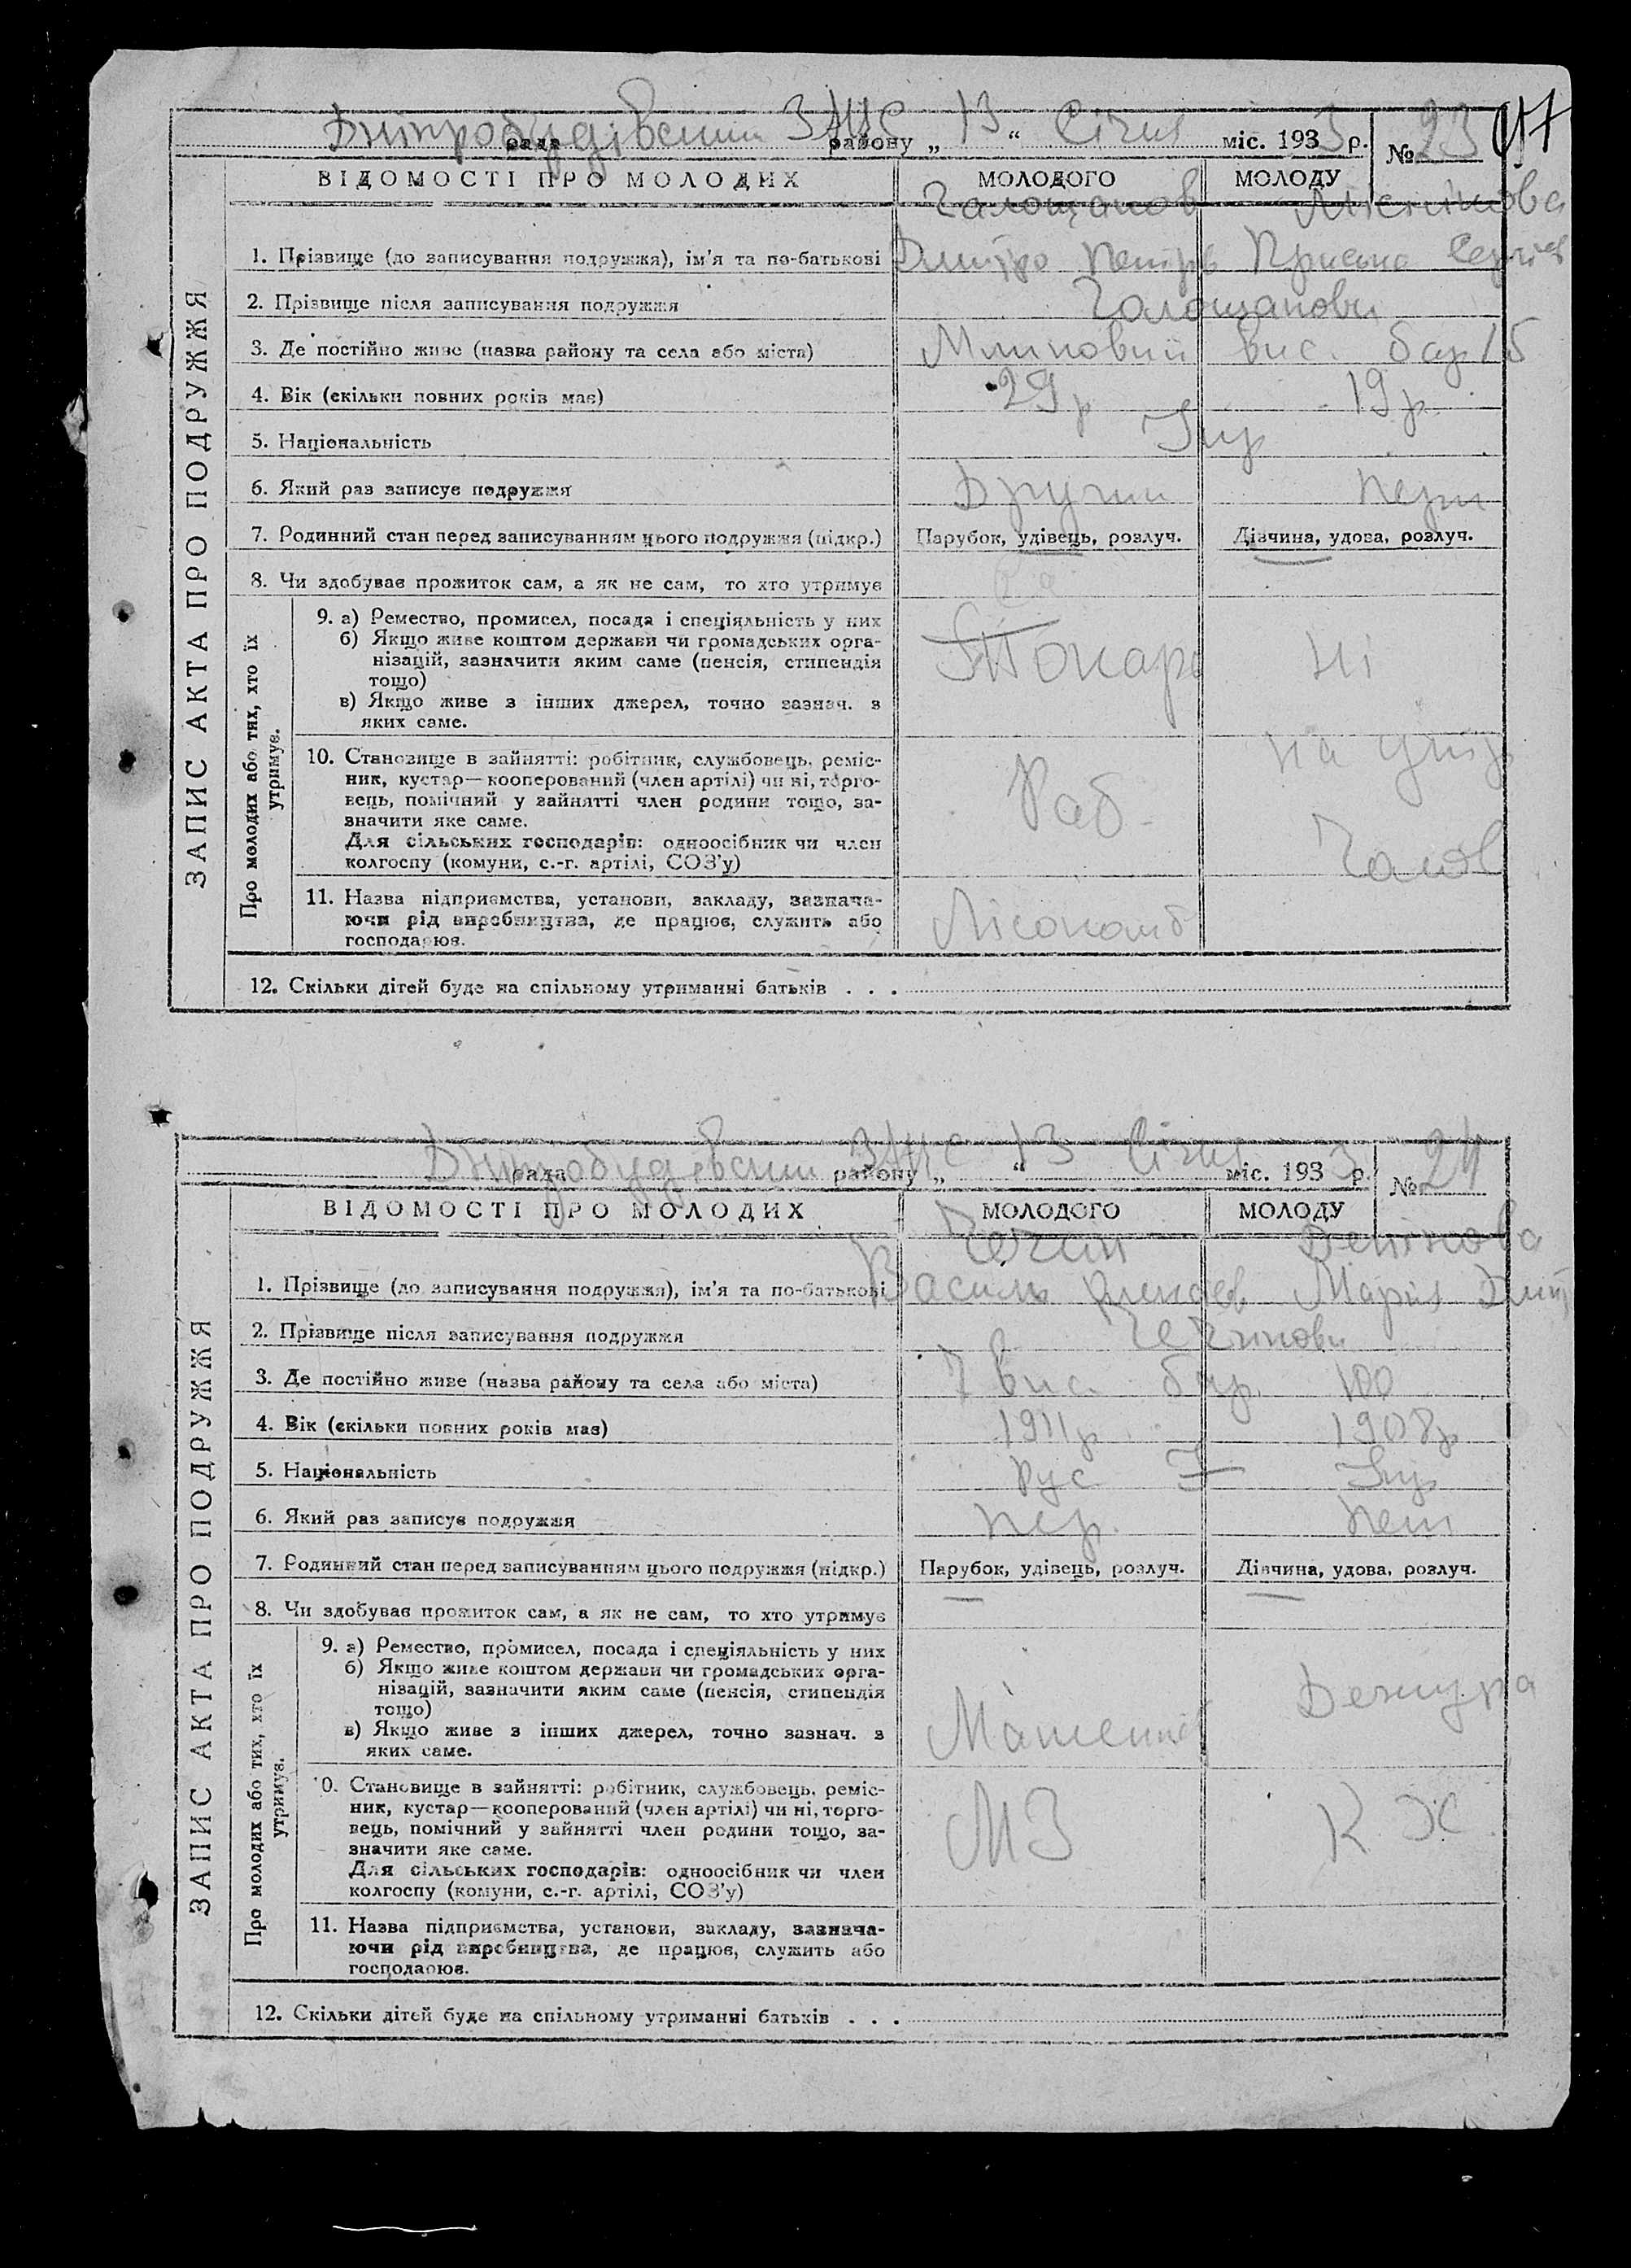 Дніпробудівський ЗАГС 13 Січня
рада району „ “ міс. 1933 р. № 23 17
ВІДОМОСТІ ПРО МОЛОДИХ МОЛОДОГО МОЛОДУ
ЗАПИС АКТА ПРО ПОДРУЖЖЯ
1. Прізвище (до записування подружжя), ім'я та по-батькові Дмитро Петрів
2. Прізвище після записування подружжя
3. Де постійно живе (назва району та села або міста) вис. бар 15
4. Вік (скільки повних років має) 29 р 19 р.
5. Національність Укр
6. Який раз записує подружжя Другий Перш
7. Родинний стан перед записуванням цього подружжя (підкр.) Парубок, удівець, розлуч. Дівчина, удова, розлуч.
8. Чи здобуває прожиток сам, а як не сам, то хто утримує
Про молодих або тих, хто їх утримує.
9. а) Ремество, промисел, посада і спеціяльність у них
б) Якщо живе коштом держави чи громадських орга-
нізацій, зазначити яким саме (пенсія, стипендія
тощо)
Токарь Ні
в) Якщо живе з інших джерел, точно зазнач. з
яких саме.
10. Становище в зайнятті: робітник, службовець, реміс-
ник, кустар—кооперований (член артілі) чи ні, торго-
вець, помічний у зайнятті член родини тощо, за-
значити яке саме.
Для сільських господарів: одноосібник чи член
колгоспу (комуни, с.-г. артілі, СОЗ'у)
Раб.
11. Назва підприємства, установи, закладу, зазнача-
ючи рід виробництва, де працює, служить або
господарює.
Лісокомб
12. Скільки дітей буде на спільному утриманні батьків . . .
Дніпробудівський ЗАГС 13 Січня
рада району „ “ міс. 1933 р. № 24
ВІДОМОСТІ ПРО МОЛОДИХ МОЛОДОГО МОЛОДУ
ЗАПИС АКТА ПРО ПОДРУЖЖЯ
1. Прізвище (до записування подружжя), ім'я та по-батькові Василь Марія Дмит
2. Прізвище після записування подружжя
3. Де постійно живе (назва району та села або міста) 7 вис. бар. 100
4. Вік (скільки повних років має) 1911р 1908р
5. Національність Рус Укр
6. Який раз записує подружжя Пер.
7. Родинний стан перед записуванням цього подружжя (підкр.) Парубок, удівець, розлуч. Дівчина, удова, розлуч.
8. Чи здобуває прожиток сам, а як не сам, то хто утримує
Про молодих або тих, хто їх утримує.
9. а) Ремество, промисел, посада і спеціяльність у них
б) Якщо живе коштом держави чи громадських орга-
нізацій, зазначити яким саме (пенсія, стипендія
тощо)
в) Якщо живе з інших джерел, точно зазнач. з
яких саме.
0. Становище в зайнятті: робітник, службовець, реміс-
ник, кустар—кооперований (член артілі) чи ні, торго-
вець, помічний у зайнятті член родини тощо, за-
значити яке саме.
Для сільських господарів: одноосібник чи член
колгоспу (комуни, с.-г. артілі, СОЗ'у)
МЗ
11. Назва підприємства, установи, закладу, зазнача-
ючи рід виробництва, де працює, служить або
господарює.
12. Скільки дітей буде на спільному утриманні батьків . . .